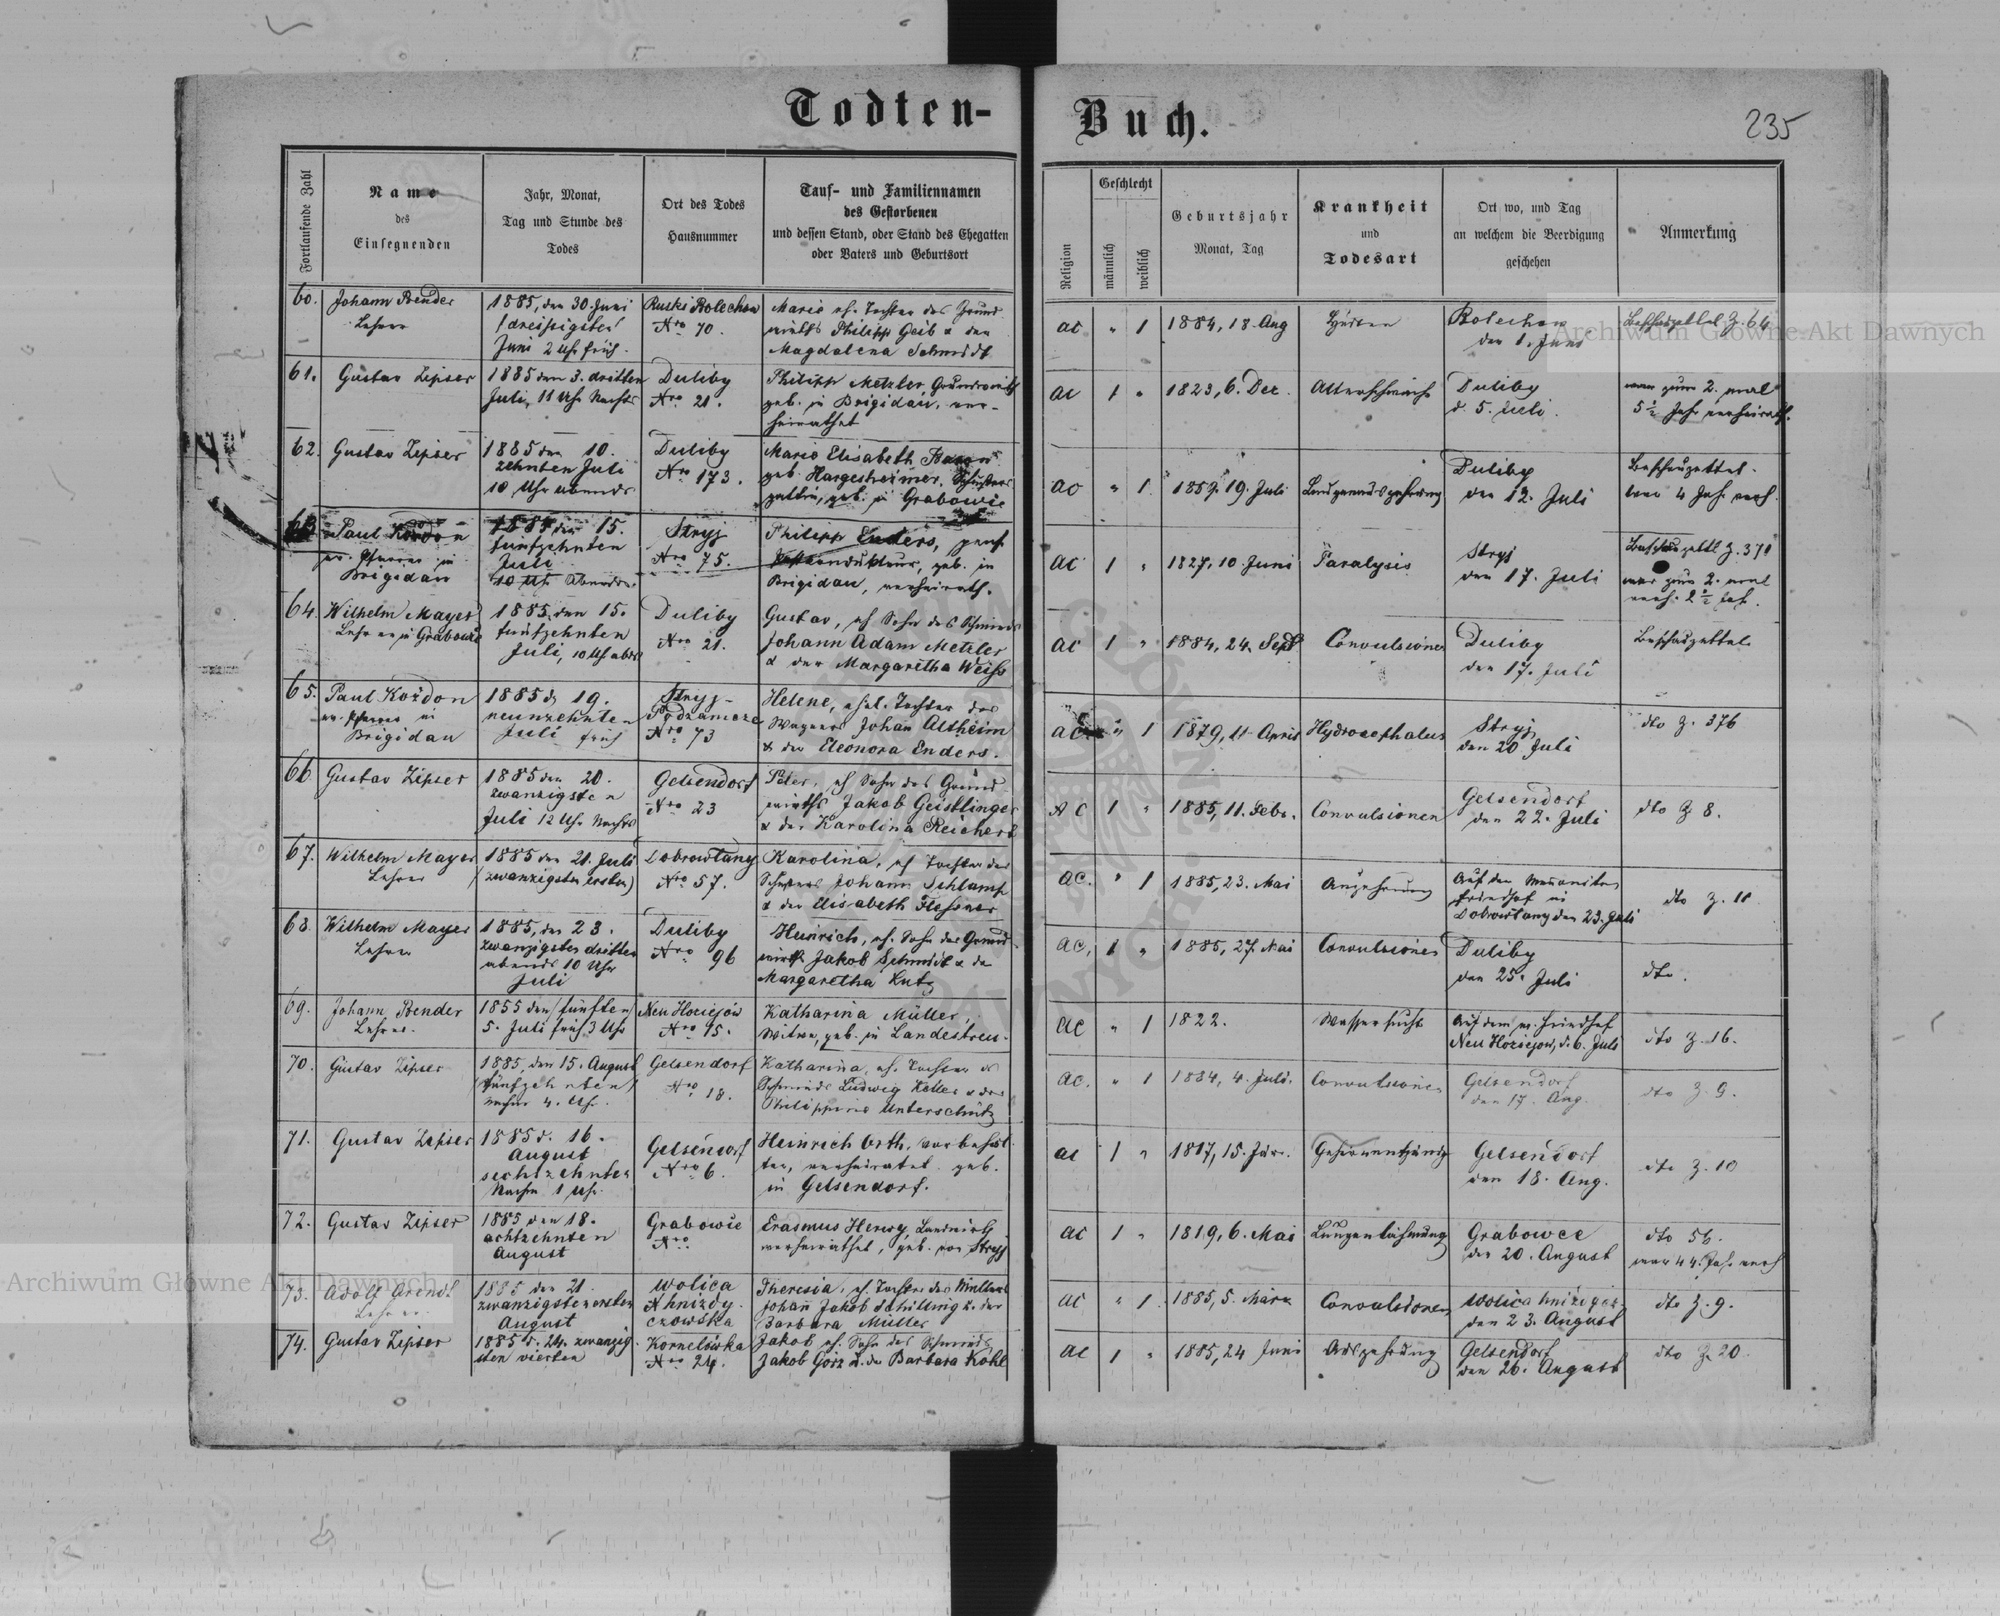 Todten-Buch.
235
Fortlaufende Zahl
Name
des
Einsegnenden
Jahr, Monat,
Tag und Stunde des
Todes
Ort des Todes
Hausnummer
Tauf- und Familiennamen
des Gestorbenen
und dessen Stand, oder Stand des Ehegatten
oder Vaters und Geburtsort
Religion
Geschlecht
männlich
weiblich
Geburtsjahr
Monat, Tag
Krankheit
und
Todesart
Ort wo, und Tag
an welchem die Beerdigung
geschehen
Anmerkung
60.
Johann Bender
Lehrer
1885, den 30. Juni
(dreißigsten)
Juni 2 Uhr früh.
Ruski Bolechow
Nro 70.
Marie eh. Tochter des Grund
wirths Philipp Geib & der
Magdalena Schmidt
ac " 1
1884, 18. Aug
Bolechow
den 1. Juni
Beschauzettel Z. 64
61.
Gustav Zipser
1885 den 3. dritten
Juli, 11 Uhr Nachts
Duliby
Nro 21.
Philipp Metzler Grundwirth
geb. in Brigidau, ver-
heirathet
ac 1 "
1823, 6. Dez.
Altersschwäche
Duliby
d. 5. Juli.
war zum 2. mal
5½ Jahr verheirath.
62.
Gustav Zipser
1885 den 10.
zehnten Juli
10 Uhr abends
Duliby
Nro 173.
Marie Elisabeth
geb. Hargesheimer, Schusters
gattin, geb. in Grabowce
ac " 1
19. Juli
Duliby
den 12. Juli
Beschauzettel.
war 4 Jahr verh.
63
Paul Kozdon
ev. Pfarrer in
Brigidau
1885 den 15.
fünfzehnten
Juli
10 Uhr Abends
Stryj
Nro 75.
Philipp Enders, pens
geb. in
Brigidau, verheirath.
ac 1 "
1827, 10. Juni
Paralysis
Stryj
den 17. Juli
Beschauzettl Z. 371
war zum 2. mal
verh. 2½ Jahr.
64.
Wilhelm Mayer
Lehrer in Grabowce
1885, den 15.
fünfzehnten
Juli, 10 Uhr abds
Duliby
Nro 21.
Gustav, eh Sohn des Schmieds
Johann Adam Metzler
& der Margaretha Weiss
ac 1 "
1884, 24. Sept
Convulsionen
Duliby
den 17. Juli
Beschauzettel
65.
Paul Kozdon
ev. Pfarrer in
Brigidau
1885 d. 19.
neunzehnten
Juli früh
Stryj-
Podzamcze
Nro 73
Helene, ehel. Tochter des
Wagners Johan Altheim
& der Eleonora Enders.
ac " 1
1879, 11. April
Hydrocephalus
Stryj
den 20 Juli
dto Z. 376
66
Gustav Zipser
1885 den 20.
zwanzigsten
Juli 12 Uhr Nachts
Gelsendorf
Nro 23
Peter, eh Sohn des Grund
wirths Jakob Geistlinger
& der Karolina Reichert
AC 1 "
1885, 11. Febr.
Convulsionen
Gelsendorf
den 22. Juli
dto Z 8.
67.
Wilhelm Mayer
Lehrer
1885 den 21. Juli
(zwanzigsten ersten)
Dobrowlany
Nro 57.
Karolina, eh Tochter des
Schusters Johann Schlamp
& der Elisabeth
ac. " 1
1885, 23. Mai
Auszehrung
Auf dem Menoniten
friedhof in
Dobrowlany den 23. Juli
dto Z. 11
68.
Wilhelm Mayer
Lehrer
1885, den 23.
zwanzigsten dritten
abends 10 Uhr
Juli
Duliby
Nro 96
Heinrich, eh. Sohn des Grund
wirth Jakob Schmidt & der
Margaretha Lutz
ac, 1 "
1885, 27. Mai
Convulsionen
Duliby
den 25. Juli
dto.
69.
Johann Bender
Lehrer.
1855 den (fünften)
5. Juli früh 3 Uhr
Neu Hoziejów
Nro 15.
Katharina Müller,
Witwe, geb. in Landestreu.
ac " 1
1822.
Wassersucht
Auf dem ev. Friedhof
Neu Hoziejow, d. 6. Juli
dto Z. 16.
70.
Gustav Zipser
1885, den 15. August
(fünfzehnten)
nachm 4. Uhr.
Gelsendorf
Nro 18.
Katharina, eh. Tochter ds
Schmieds Ludwig Keller & der
Philippine Unterschütz
ac. " 1
1884, 4. Juli.
Convulsionen
Gelsendorf
den 17. Aug.
dto Z. 9.
71.
Gustav Zipser
1885 d. 16.
August
sechszehnten
Nachm 1 Uhr.
Gelsendorf
Nro 6.
Heinrich Orth,
verheiratet geb.
in Gelsendorf.
ac 1 "
1817, 15. Jän.
Gehirnentzündg
Gelsendorf
den 18. Aug.
dto Z. 10
72.
Gustav Zipser
1885 den 18.
achtzehnten
August
Grabowce
Nro
Erasmus Herwy, Landwirth
verheirathet, geb. von Stryj
ac 1 "
1819, 6. Mai
Lungenlähmung
Grabowce
den 20. August
dto 56.
war 44 Jahr verh
73.
Adolf Arendt
Lehrer.
1885 den 21.
zwanzigsten ersten
August
Wolica
Hnizdy-
czowska
Theresia, eh. Tochter des Müllers
Johan Jakob Schilling & der
Barbara Müller
ac " 1
1885, 5. März
Convulsionen
Wolica hnizdycz.
den 23. August
dto Z. 9.
74.
Gustav Zipser
1885 d. 24. zwanzig-
sten vierten
Kornelówka
Nro 24.
Jakob eh. Sohn des Schmieds
Jakob Görz & der Barbara Köhl
ac 1 "
1885, 24 Juni
Auszehrung
Gelsendorf
den 26. August
dto Z 20.
Archiwum Główne Akt Dawnych
Archiwum Główne Akt Dawnych